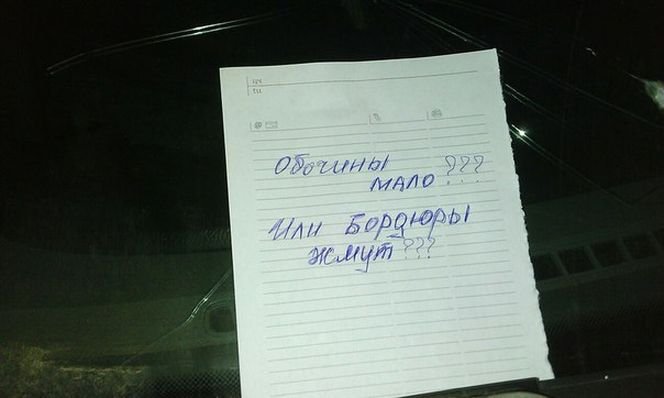 Обочины
мало ???
Или Бордюры
жмут ???